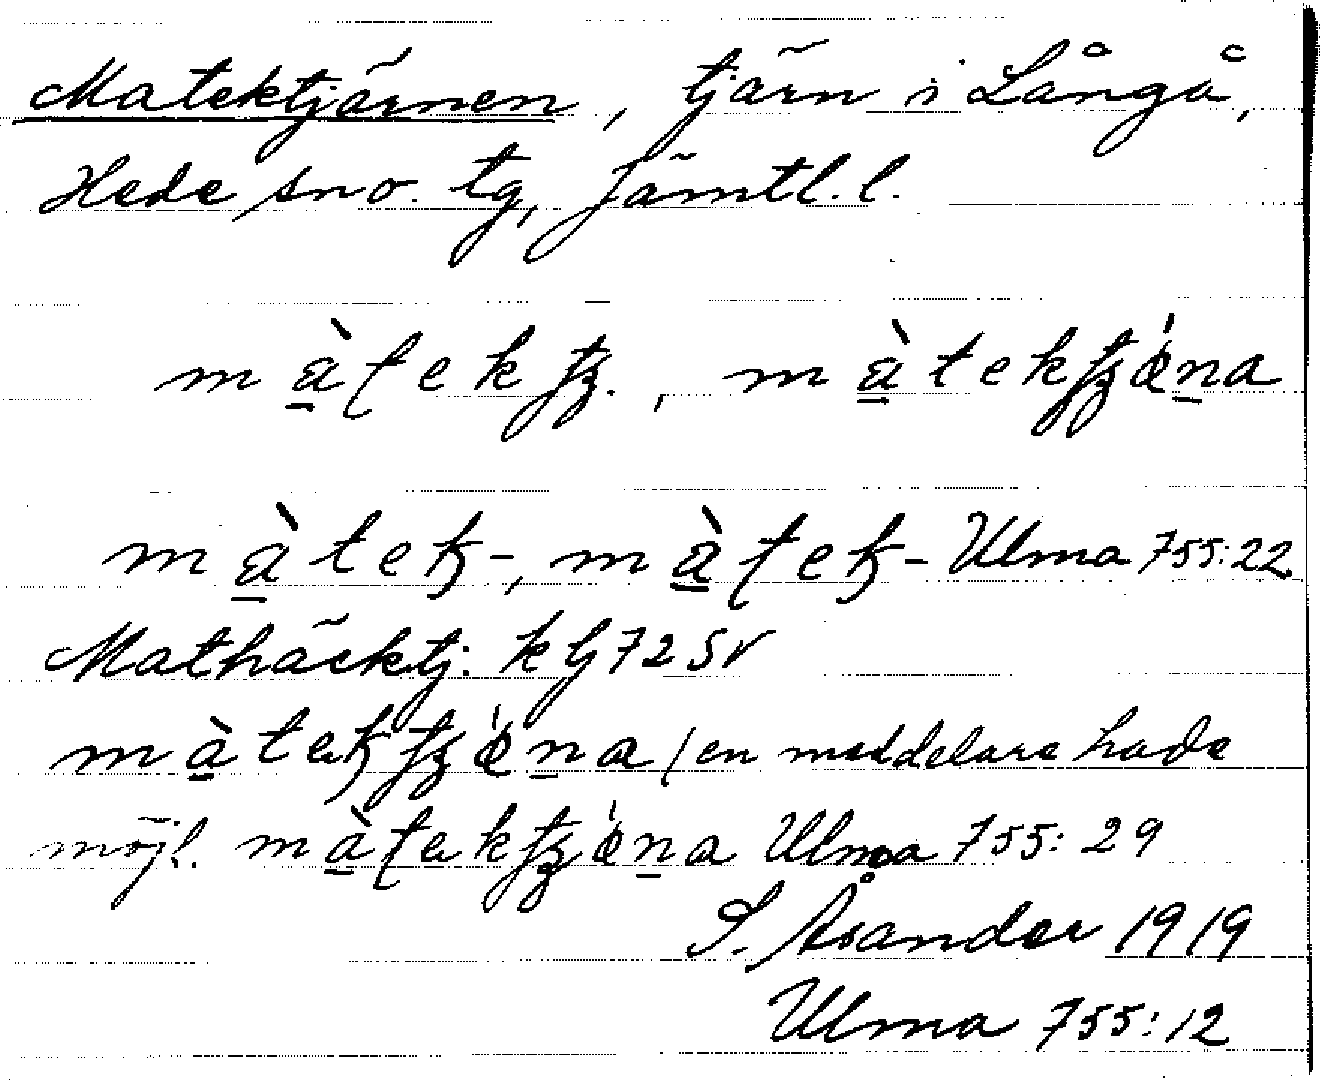 Matektjärnen, tjärn i Långå,
Hede sn o. tg, Jämtl. l.
màtektʒ., màtektʒǽna
màtek-, màtek- Ulma 755:22
Mathäcktj. k bj 72 SV
màtektʒǽna (en meddelare hade
möjl. màtektʒǽna Ulma 755:29
S. Åsander 1919
Ulma 755:12